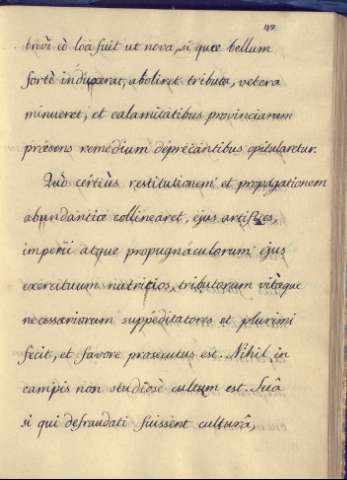 briôi eò loci fuit ut nova, si quæ bellum
fortè induxerat, aboliret tributa, vetera
minueret, et calamitatibus provinciarum
præsens remedium deprecantibus opitularetur.
Quò certiùs restitutionem et propagationem
abundantiæ collinearet, ejus artifices,
imperii atque propugnáculorum ejus
exercituum nutritios, tributorum vitæque
necessariorum suppeditatores et plurimi
fecit, et favore prosecutus est. Nihil in
campis non studiosè cultum est. Suâ
si qui defraudati fuissent culturâ,